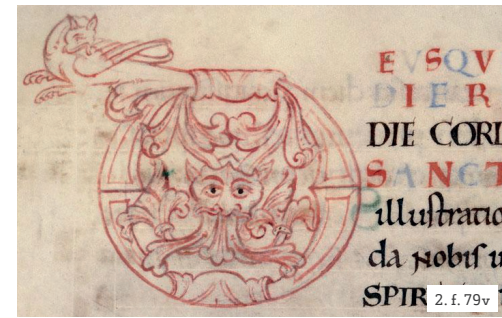 EUSQU
DIER
DIE CORD
SANCT
illustratio
da nobis u
SPIR
2. f. 79v